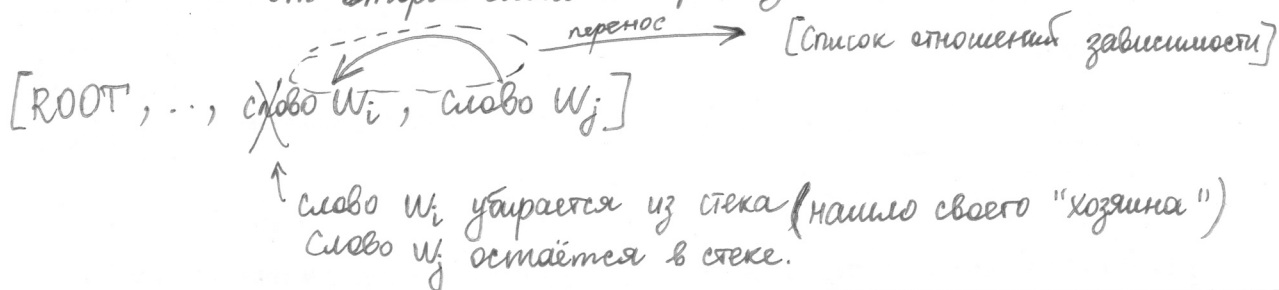 перенос
[Список отношений зависимости]
[ROOT, .., слово Wi, слово Wj]
слово Wi убирается из стека (нашло своего "хозяина")
Слово Wj остаётся в стеке.